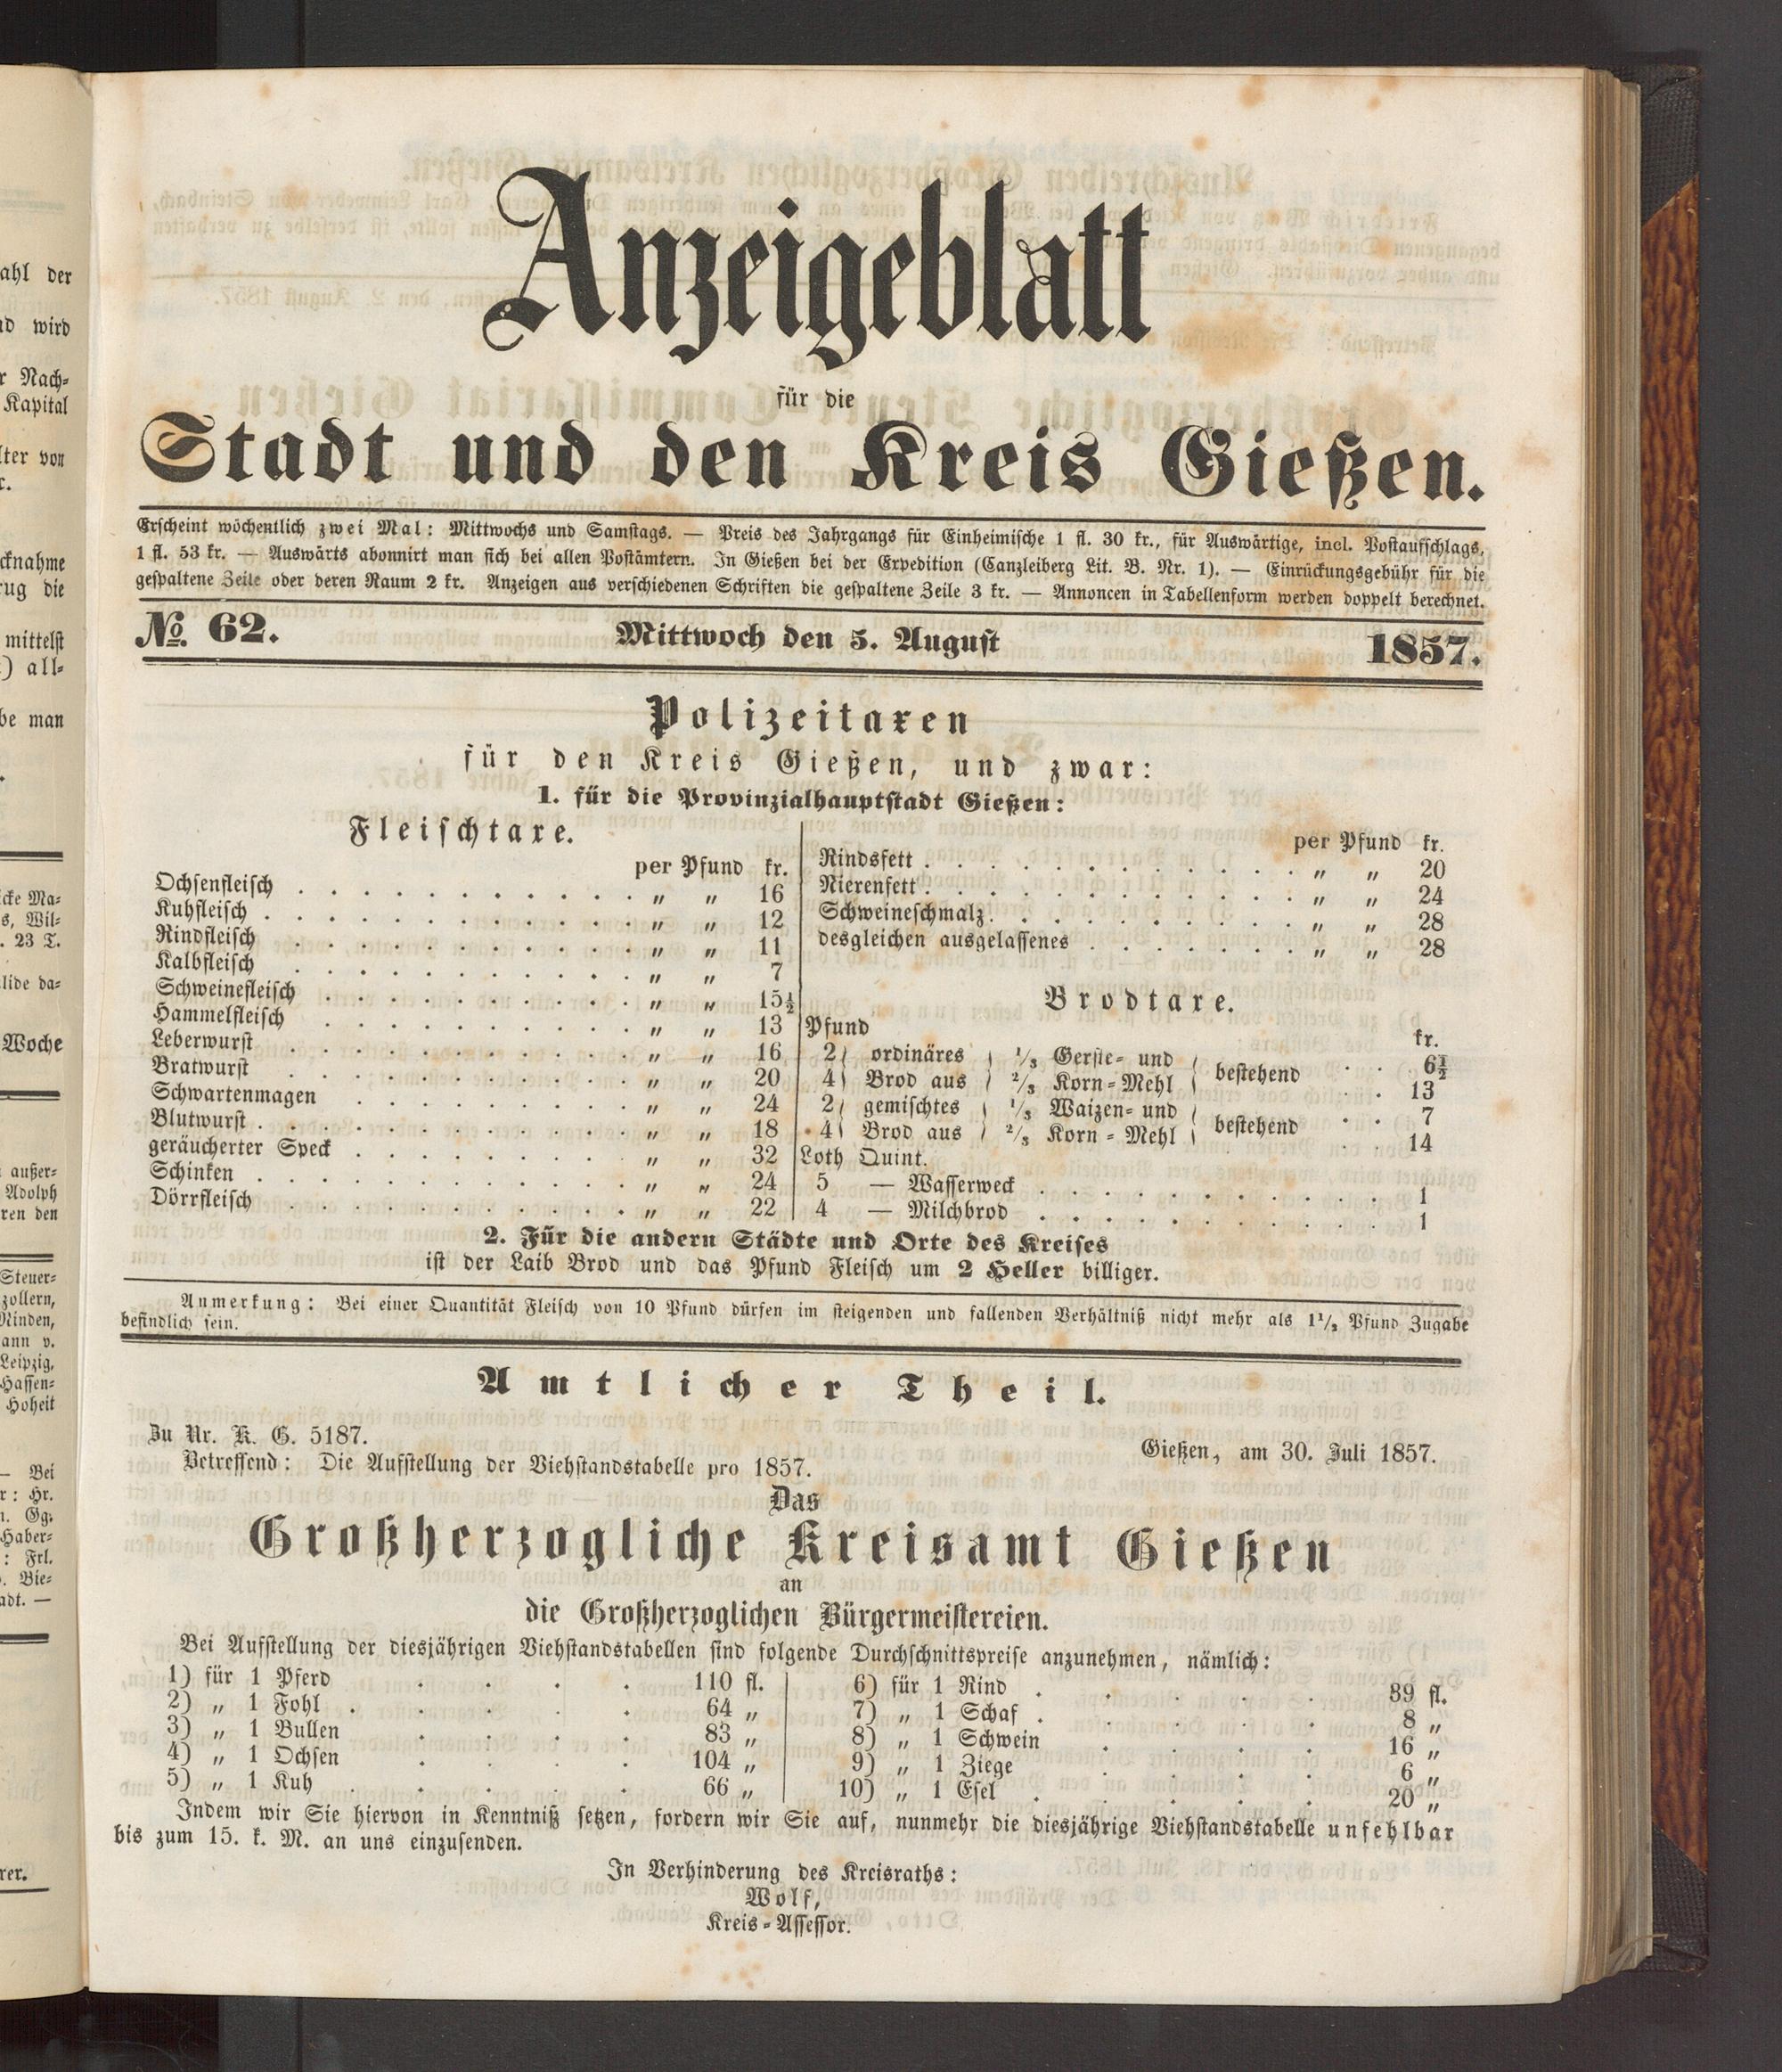 Anzeigeblatt
für die
Stadt und den Kreis Gießen.
Erscheint wöchentlich zwei Mal: Mittwochs und Samstags. — Preis des Jahrgangs für Einheimische 1 fl. 30 kr., für Auswärtige, incl. Postaufschlags,
1 fl. 53 kr. — Auswärts abonnirt man sich bei allen Postämtern. In Gießen bei der Expedition (Canzleiberg Lit. B. Nr. 1). — Einrückungsgebühr für die
gespaltene Zeile oder deren Raum 2 kr. Anzeigen aus verschiedenen Schriften die gespaltene Zeile 3 kr. — Annoncen in Tabellenform werden doppelt berechnet.
No. 62. Mittwoch den 5. August 1857.
Polizeitaxen
für den Kreis Gießen, und zwar:
1. für die Provinzialhauptstadt Gießen:
Fleischtaxe.
per Pfund kr.
Ochsenfleisch . . . . . . . . . . . „ „ 16
Kuhfleisch . . . . . . . . . . . . „ „ 12
Rindfleisch . . . . . . . . . . . „ „ 11
Kalbfleisch . . . . . . . . . . . „ „ 7
Schweinefleisch . . . . . . . . . . „ „ 15½
Hammelfleisch . . . . . . . . . . „ „ 13
Leberwurst . . . . . . . . . . . „ „ 16
Bratwurst . . . . . . . . . . . „ „ 20
Schwartenmagen . . . . . . . . . „ „ 24
Blutwurst . . . . . . . . . . . . „ „ 18
geräucherter Speck . . . . . . . . . „ „ 32
Schinken . . . . . . . . . . . . „ „ 24
Dörrfleisch . . . . . . . . . . . „ „ 22
per Pfund kr.
Rindsfett . . . . . . . . . . . . „ „ 20
Nierenfett . . . . . . . . . . . . „ „ 24
Schweineschmalz . . . . . . . . . . „ „ 28
desgleichen ausgelassenes . . . . . . . „ „ 28
Brodtaxe.
Pfund kr.
2 ordinäres 1/3 Gerste- und bestehend . . 6½
4 Brod aus 2/3 Korn-Mehl . . 13
2 gemischtes 1/3 Waizen- und bestehend . . 7
4 Brod aus 2/3 Korn-Mehl . . 14
Loth Quint.
5 — Wasserweck . . . . . . . . . . 1
4 — Milchbrod . . . . . . . . . . 1
2. Für die andern Städte und Orte des Kreises
ist der Laib Brod und das Pfund Fleisch um 2 Heller billiger.
Anmerkung: Bei einer Quantität Fleisch von 10 Pfund dürfen im steigenden und fallenden Verhältniß nicht mehr als 1½ Pfund Zugabe
befindlich sein.
Amtlicher Theil.
Zu Nr. K. G. 5187. Gießen, am 30. Juli 1857.
Betreffend: Die Aufstellung der Viehstandstabelle pro 1857.
Das
Großherzogliche Kreisamt Gießen
an
die Großherzoglichen Bürgermeistereien.
Bei Aufstellung der diesjährigen Viehstandstabellen sind folgende Durchschnittspreise anzunehmen, nämlich:
1) für 1 Pferd . . . . 110 fl.
2) „ 1 Fohl . . . . . 64 „
3) „ 1 Bullen . . . . 83 „
4) „ 1 Ochsen . . . . 104 „
5) „ 1 Kuh . . . . . 66 „
6) für 1 Rind . . . . . 39 fl.
7) „ 1 Schaf . . . . . 8 „
8) „ 1 Schwein . . . . 16 „
9) „ 1 Ziege . . . . 6 „
10) „ 1 Esel . . . . . 20 „
Indem wir Sie hiervon in Kenntniß setzen, fordern wir Sie auf, nunmehr die diesjährige Viehstandstabelle unfehlbar
bis zum 15. k. M. an uns einzusenden.
In Verhinderung des Kreisraths:
Wolf,
Kreis-Assessor.